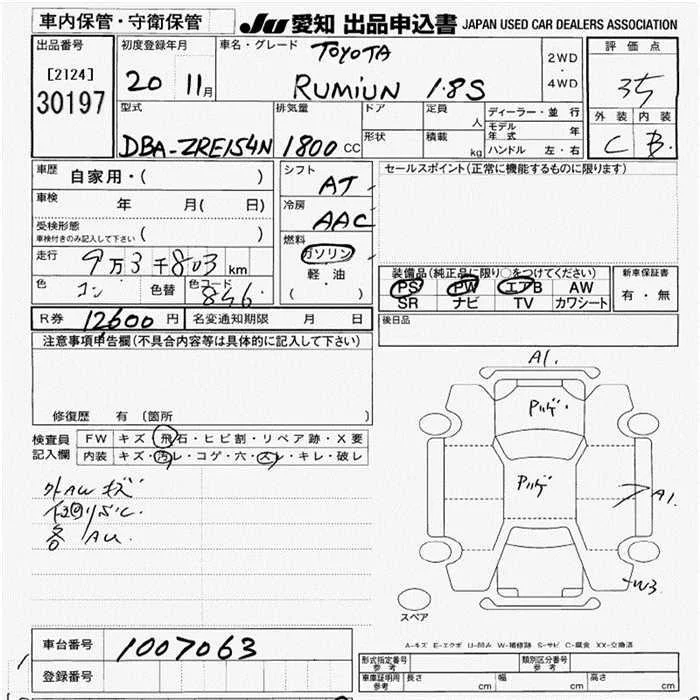 車内保管・守衛保管
JU 愛知 出品申込書 JAPAN USED CAR DEALERS ASSOCIATION
出品番号
[2124]
30197
初度登録年月
20 11月
車名・グレード
TOYOTA
RUMIUN 1.8S
2WD
・
4WD
評価点
35
外装 内装
C B
型式
DBA-ZRE154N
排気量
1800 CC
ドア
形状
定員 人
積載 kg
ディーラー・並行
モデル年式 年
ハンドル 左・右
車歴
自家用・( )
車検
年 月( 日)
受検形態
車検付きのみ記入して下さい ( )
走行
9万3千803km
色 コン 色替 色コード 846
シフト
AT
冷房
AAC
燃料
ガソリン
軽・油
( )
セールスポイント(正常に機能するものに限ります)
装備品(純正品に限り○をつけてください)
PS PW エアB AW
SR ナビ TV カワシート
新車保証書
有・無
R券 12600円 名変通知期限 月 日
後日品
注意事項申告欄(不具合内容等は具体的に記入して下さい)
修復歴 有 (箇所
検査員
記入欄
FW キズ・飛石・ヒビ割・リペア跡・X要
内装 キズ・汚レ・コゲ・穴・スレ・キレ・破レ
外AWキズ
各 AU.
A1.
Pハゲ・
Pハゲ
A1.
W3
スペア
A-キズ E-エクボ U-凹み W-補修跡 S-サビ C-腐食 XX-交換済
車台番号
1007063
登録番号
形式指定番号
参考
類別区分番号
参考
車庫証明用
参考
長さ cm 幅 cm 高さ cm